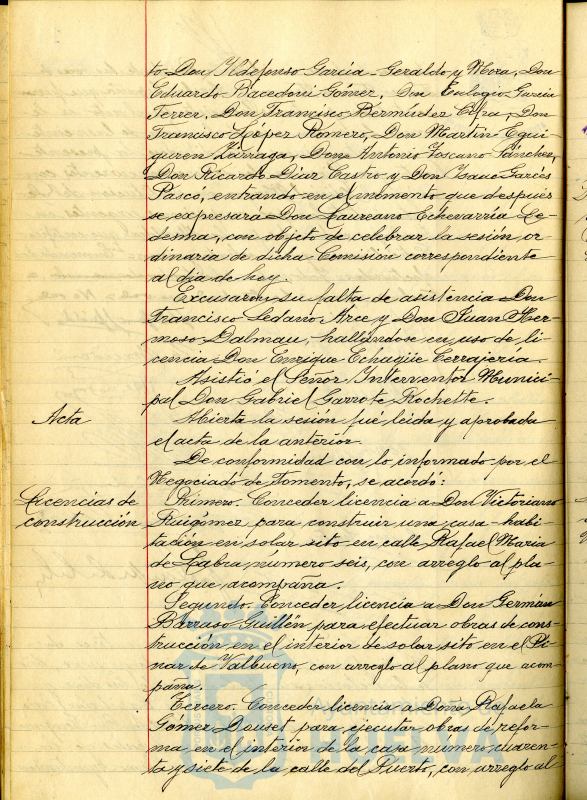 to Don Ildefonso García-Geraldo y Mora, Don
Eduardo Bacedoni Gómez, Don Eulogio García
Ferrer, Don Francisco Bermúdez Cifra, Don
Francisco López Romero, Don Martín Egui-
guren Zárraga, Don Antonio Toscano Sánchez,
Don Ricardo Díaz Castro y Don Isaac García
Pascó, entrando en el momento que después
se expresará Don Laureano Echevarría Le-
desma, con objeto de celebrar la sesión or-
dinaria de dicha Comisión correspondiente
al día de hoy.
Excusaron su falta de asistencia Don
Francisco Sedano Arce y Don Juan Her-
moso Dalmau, hallándose en uso de li-
cencia Don Enrique Echagüe Cerrajería.
Asistió el Señor Interventor Munici-
pal Don Gabriel Garrote Rochette.
Acta
Abierta la sesión fué leída y aprobada
el acta de la anterior.
De conformidad con lo informado por el
Negociado de Fomento, se acordó:
Licencias de
construcción
Primero. Conceder licencia a Don Victoriano
Ruigómez para construir una casa-habi-
tación en solar sito en calle Rafael María
de Labra, número seis, con arreglo al pla-
no que acompaña.
Segundo. Conceder licencia a Don Germán
Barraso Guillén para efectuar obras de cons-
trucción en el interior de solar sito en el Pi-
nar de Valbueno, con arreglo al plano que acom-
paña.
Tercero. Conceder licencia a Doña Rafaela
Gómez Douset para ejecutar obras de refor-
ma en el interior de la casa número cuaren-
ta y siete de la calle del Puerto, con arreglo al